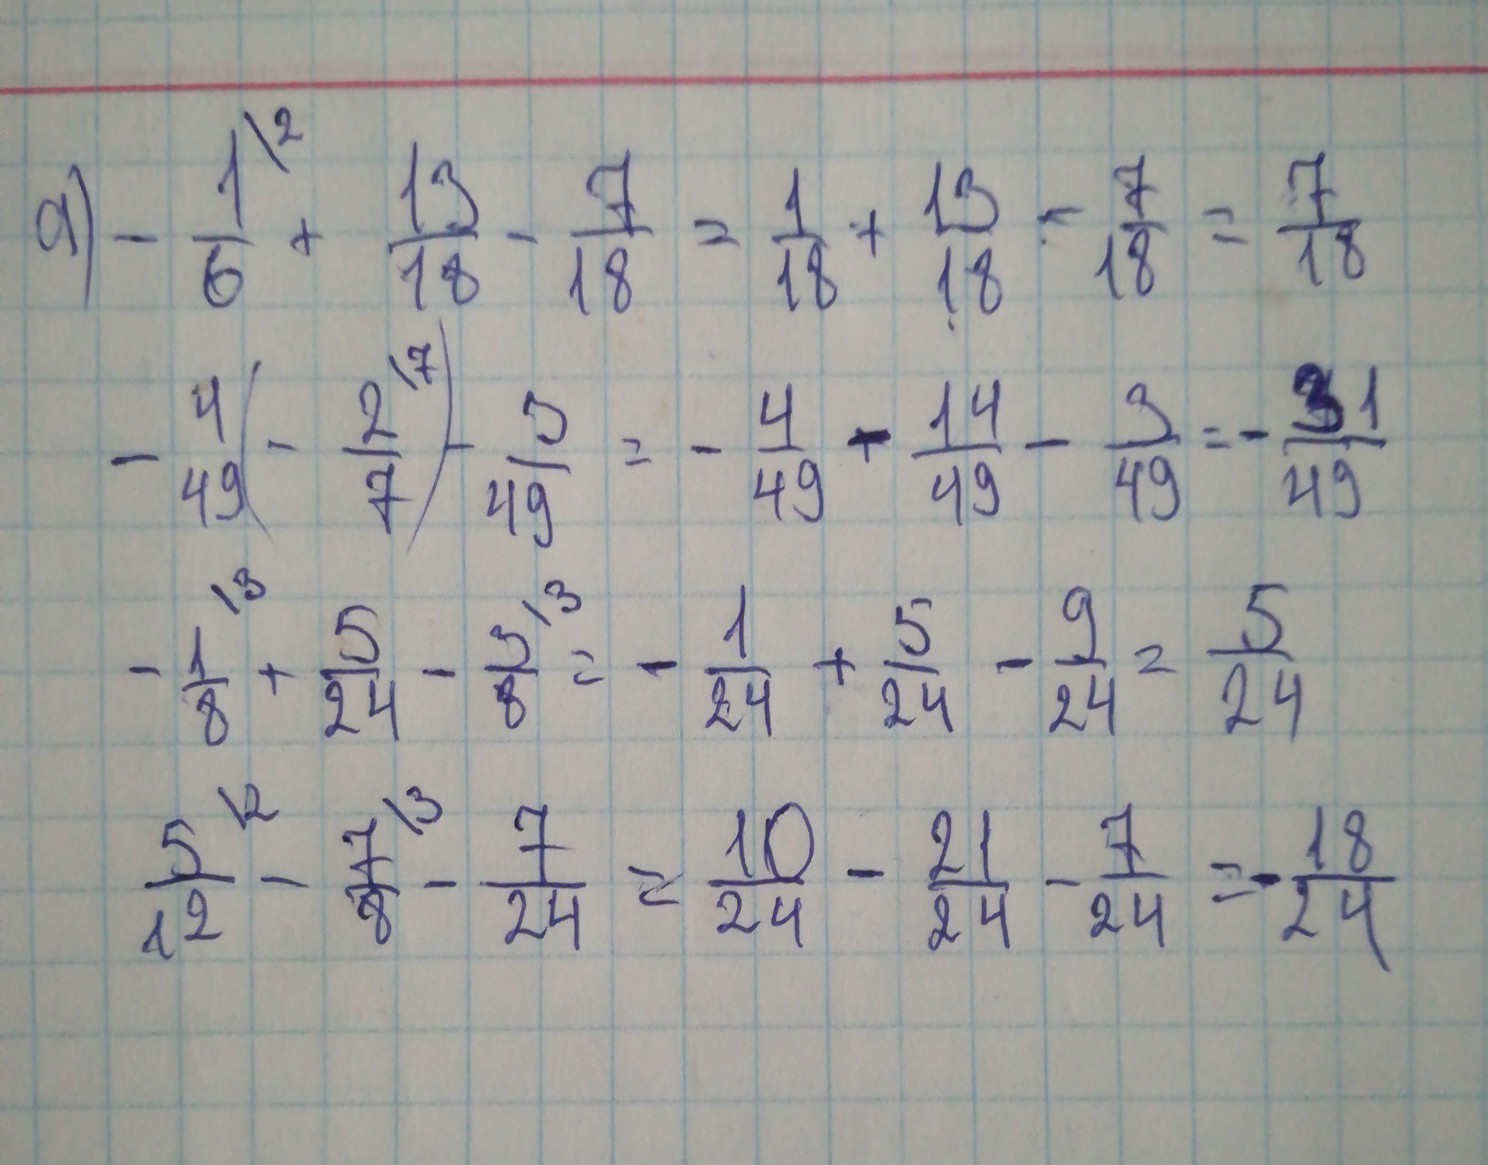 а) - 1/6 \2 + 13/18 - 7/18 = 1/18 + 13/18 - 7/18 = 7/18
- 4/49 ( - 2/7 \7 ) - 3/49 = - 4/49 - 14/49 - 3/49 = - 31/49
- 1/8 \3 + 5/24 - 3/8 \3 = - 1/24 + 5/24 - 9/24 = 5/24
5/12 \2 - 7/8 \3 - 7/24 = 10/24 - 21/24 - 7/24 = - 18/24